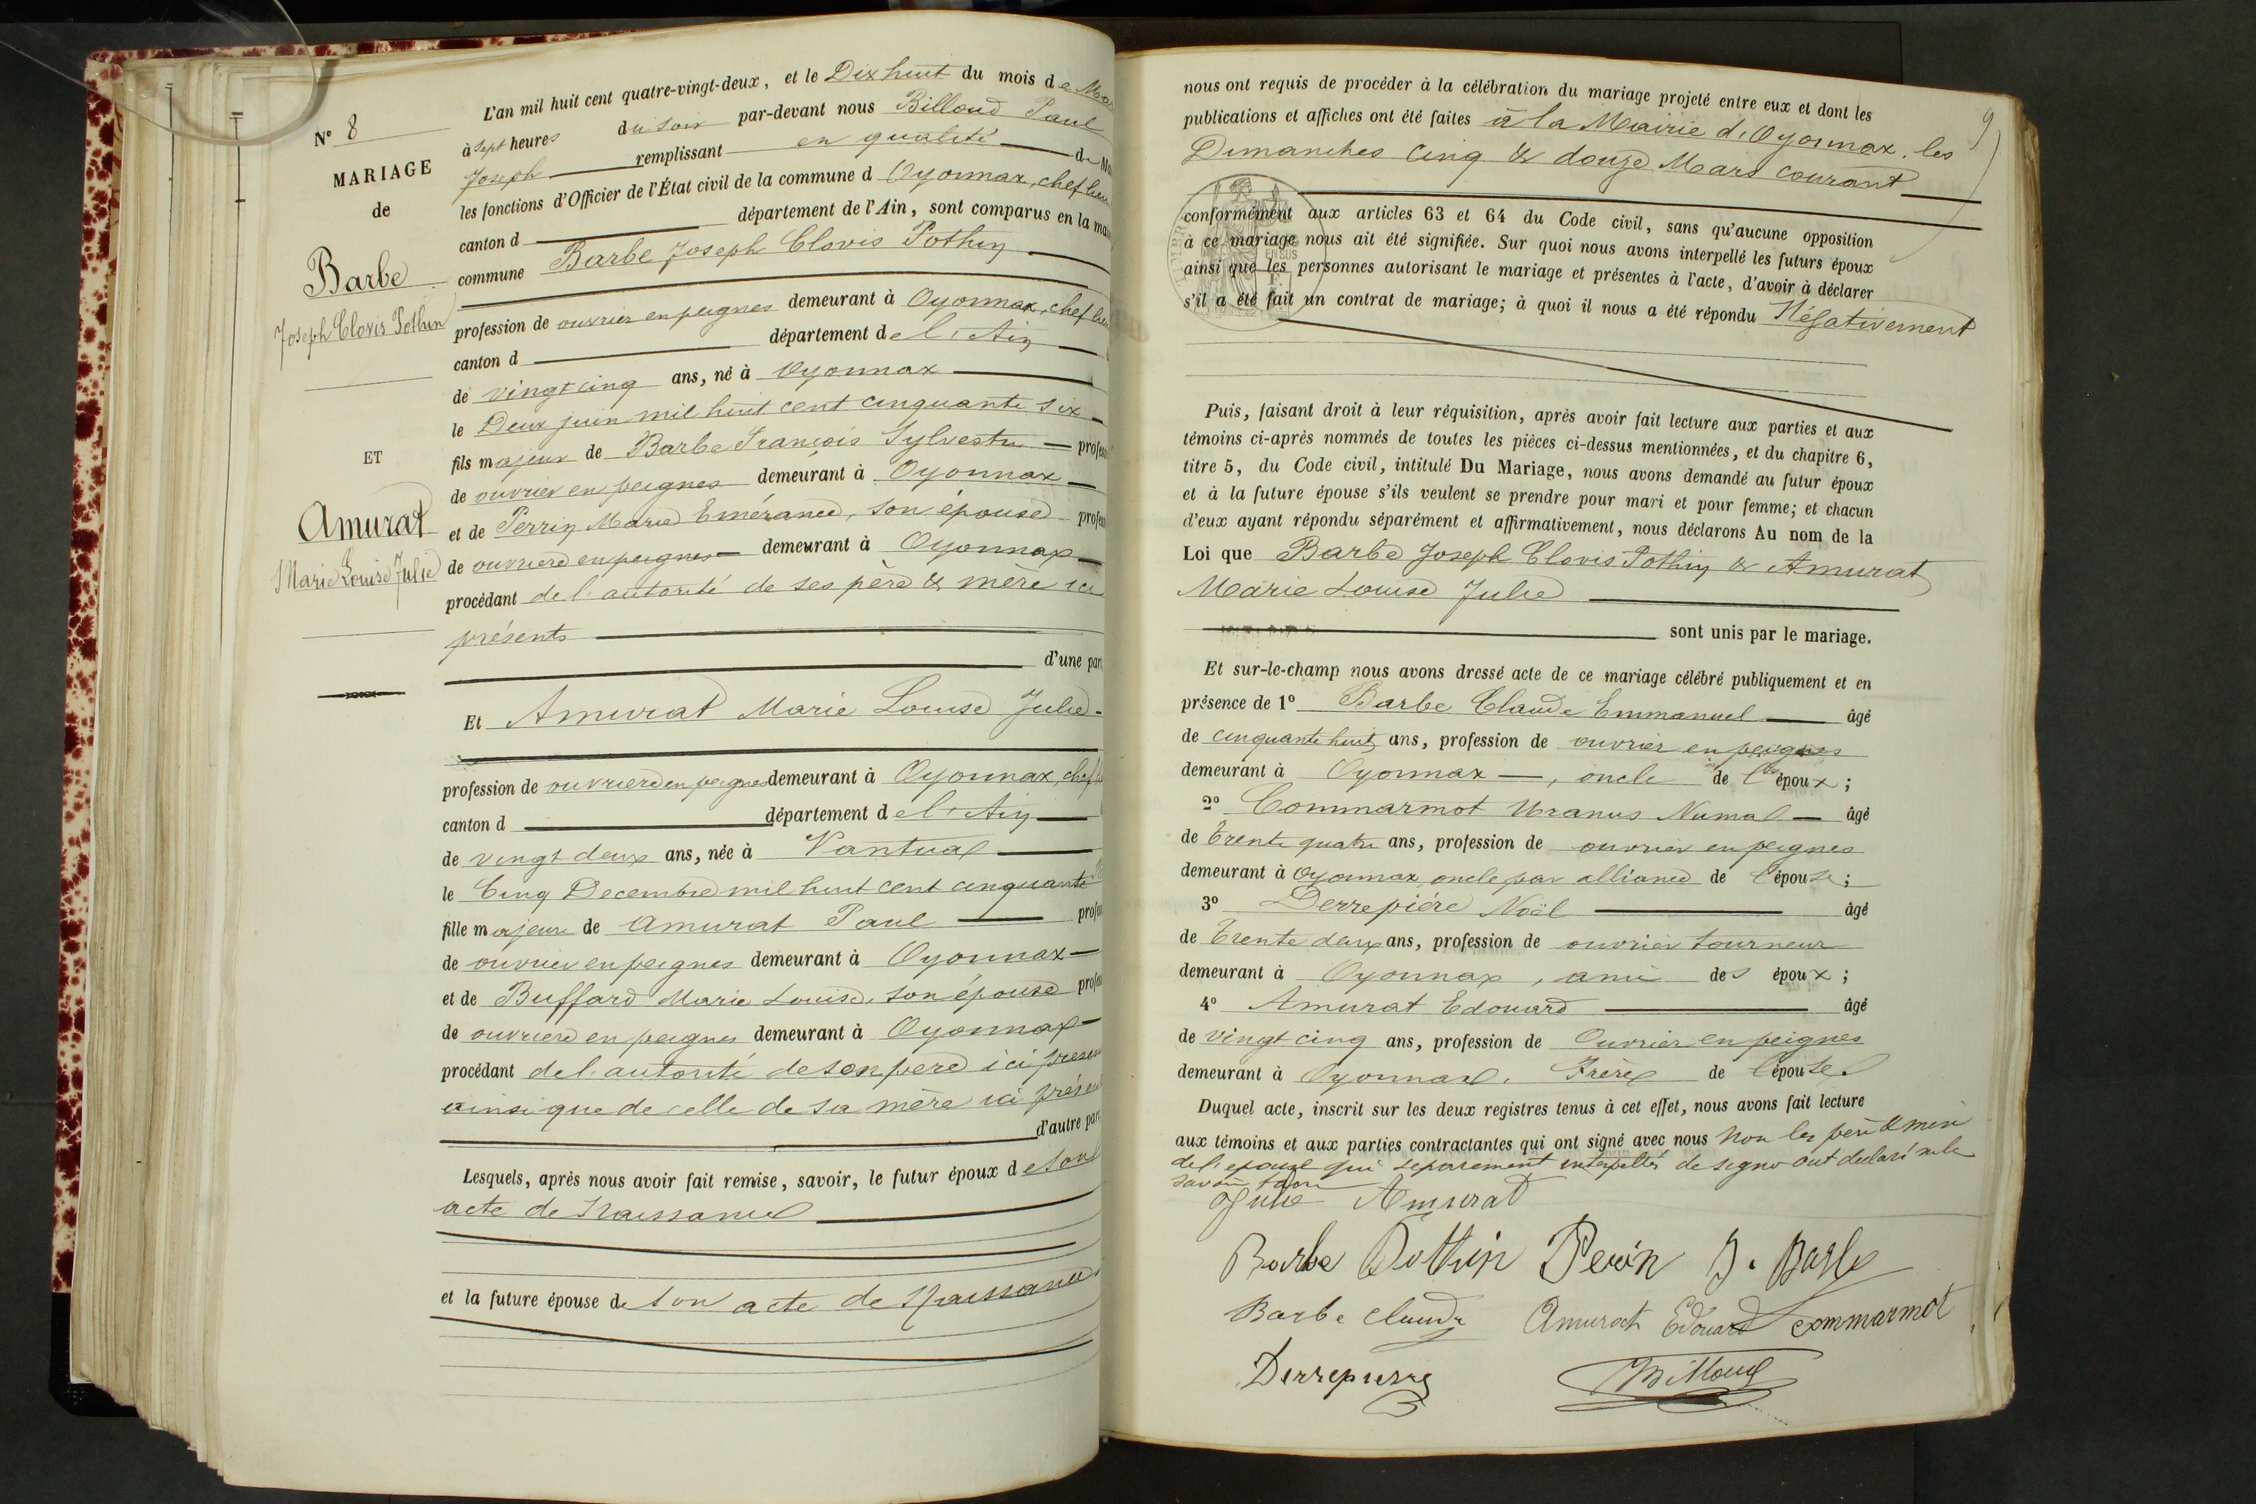 N° 8
MARIAGE
de
Barbe
Joseph Clovis Pothin
ET
Amurat
Marie Louise Julie
L'an mil huit cent quatre-vingt-deux, et le Dix huit du mois de Mar
à sept heures du soir par-devant nous Billoud Paul
Joseph remplissant en qualité de M
les fonctions d'Officier de l'État civil de la commune d Oyonnax, chef lieu
canton d département de l'Ain, sont comparus en la ma
commune Barbe Joseph Clovis Pothin
profession de ouvrier en peignes demeurant à Oyonnax, chef lieu
canton d département de l'Ain
de vingt cinq ans, né à Oyonnax
le Deux juin mil huit cent cinquante six
fils majeur de Barbe François Sylvestre profes
de ouvrier en peignes demeurant à Oyonnax
et de Perrin Marie Emérance, son épouse profes
de ouvriere en peignes demeurant à Oyonnax
procédant de l'autorité de ses père & mère ici
présents
d'une par
Et Amurat Marie Louise Julie
profession de ouvriere en peignes demeurant à Oyonnax, chef
canton d département de l'Ain
de vingt deux ans, née à Nantua
le Cinq Decembre mil huit cent cinquante
fille majeure de Amurat Paul profes
de ouvrier en peignes demeurant à Oyonnax
et de Buffard Marie Louise, son épouse profes
de ouvriere en peignes demeurant à Oyonnax
procédant de l'autorité de son père ici présen
ainsi que de celle de sa mère ici présen
d'autre par
Lesquels, après nous avoir fait remise, savoir, le futur époux de son
acte de Naissance
et la future épouse de son acte de Naissance
9
nous ont requis de procéder à la célébration du mariage projeté entre eux et dont les
publications et affiches ont été faites à la Mairie d'Oyonnax, les
Dimanches cinq & douze Mars courant
conformément aux articles 63 et 64 du Code civil, sans qu'aucune opposition
à ce mariage nous ait été signifiée. Sur quoi nous avons interpellé les futurs époux
ainsi que les personnes autorisant le mariage et présentes à l'acte, d'avoir à déclarer
s'il a été fait un contrat de mariage; à quoi il nous a été répondu Négativement
Puis, faisant droit à leur réquisition, après avoir fait lecture aux parties et aux
témoins ci-après nommés de toutes les pièces ci-dessus mentionnées, et du chapitre 6,
titre 5, du Code civil, intitulé Du Mariage, nous avons demandé au futur époux
et à la future épouse s'ils veulent se prendre pour mari et pour femme; et chacun
d'eux ayant répondu séparément et affirmativement, nous déclarons Au nom de la
Loi que Barbe Joseph Clovis Pothin & Amurat
Marie Louise Julie
sont unis par le mariage.
Et sur-le-champ nous avons dressé acte de ce mariage célébré publiquement et en
présence de 1° Barbe Claude Emmanuel âgé
de cinquante huit ans, profession de ouvrier en peignes
demeurant à Oyonnax, oncle de l'époux;
2° Commarmot Uranus Numa âgé
de trente quatre ans, profession de ouvrier en peignes
demeurant à Oyonnax, oncle par alliance de l'épouse;
3° Derrepière Noël âgé
de Trente deux ans, profession de ouvrier tourneur
demeurant à Oyonnax, ami des époux;
4° Amurat Edouard âgé
de vingt cinq ans, profession de Ouvrier en peignes
demeurant à Oyonnax, Frère de l'épouse
Duquel acte, inscrit sur les deux registres tenus à cet effet, nous avons fait lecture
aux témoins et aux parties contractantes qui ont signé avec nous non les père & mère
de l'épouse qui séparement interpellés de signer ont declaré ne le
savoir faire
Julie Amurat
Barbe Pothin Perrin J. Barbe
Barbe Claude Amurat Edouard Commarmot
Derrepierre
Billoud